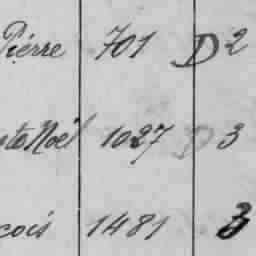 Pierre 701 D 2
Noël 1027 D 3
çois 1481 3